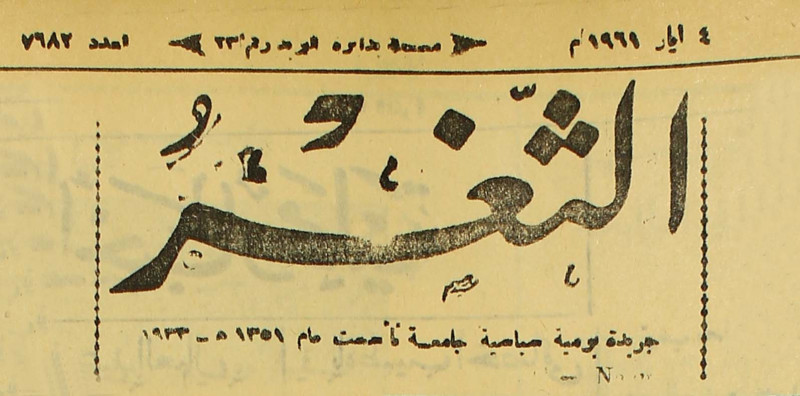 ٤ ايار ١٩٦١م مسجلة بدائرة البريد رقم ٢٣ العدد ٧٦٨٢
الثَّغْرُ
جريدة يومية صباحية جامعة تأسست عام ١٣٥١ هـ - ١٩٣٣